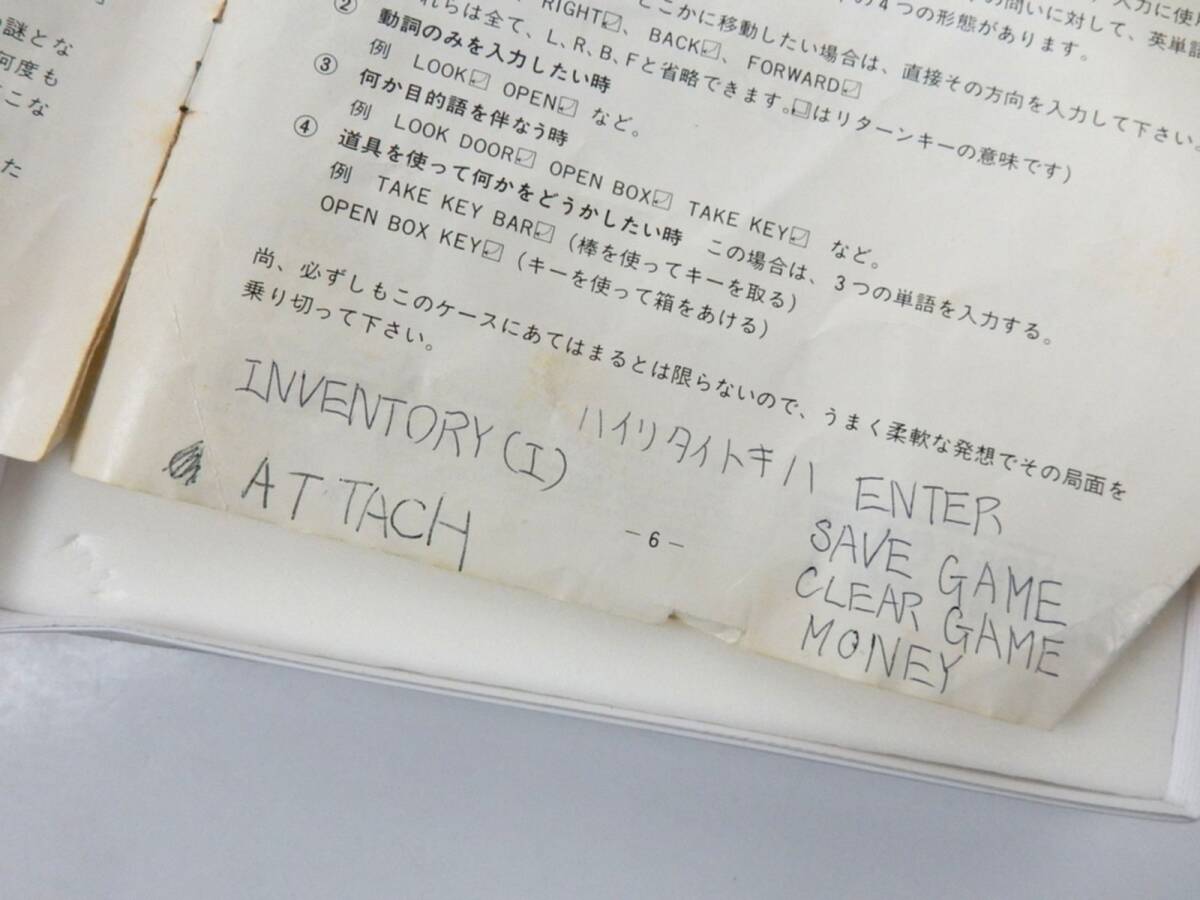 謎とな
何度も
こな
た
入力に使用
の問いに対して、英単語
の4つの形態があります。
どこかに移動したい場合は、直接その方向を入力して下さい。
RIGHT↵、 BACK↵、 FORWARD↵
れらは全て、L、R、B、Fと省略できます。↵はリターンキーの意味です)
② 動詞のみを入力したい時
例 LOOK↵ OPEN↵ など。
③ 何か目的語を伴なう時
例 LOOK DOOR↵ OPEN BOX↵ TAKE KEY↵ など。
④ 道具を使って何かをどうかしたい時 この場合は、3つの単語を入力する。
例 TAKE KEY BAR↵ (棒を使ってキーを取る)
OPEN BOX KEY↵ (キーを使って箱をあける)
尚、必ずしもこのケースにあてはまるとは限らないので、うまく柔軟な発想でその局面を
乗り切って下さい。
INVENTORY(I) ハイリタイトキハ ENTER
ATTACH
SAVE GAME
CLEAR GAME
MONEY
−6−